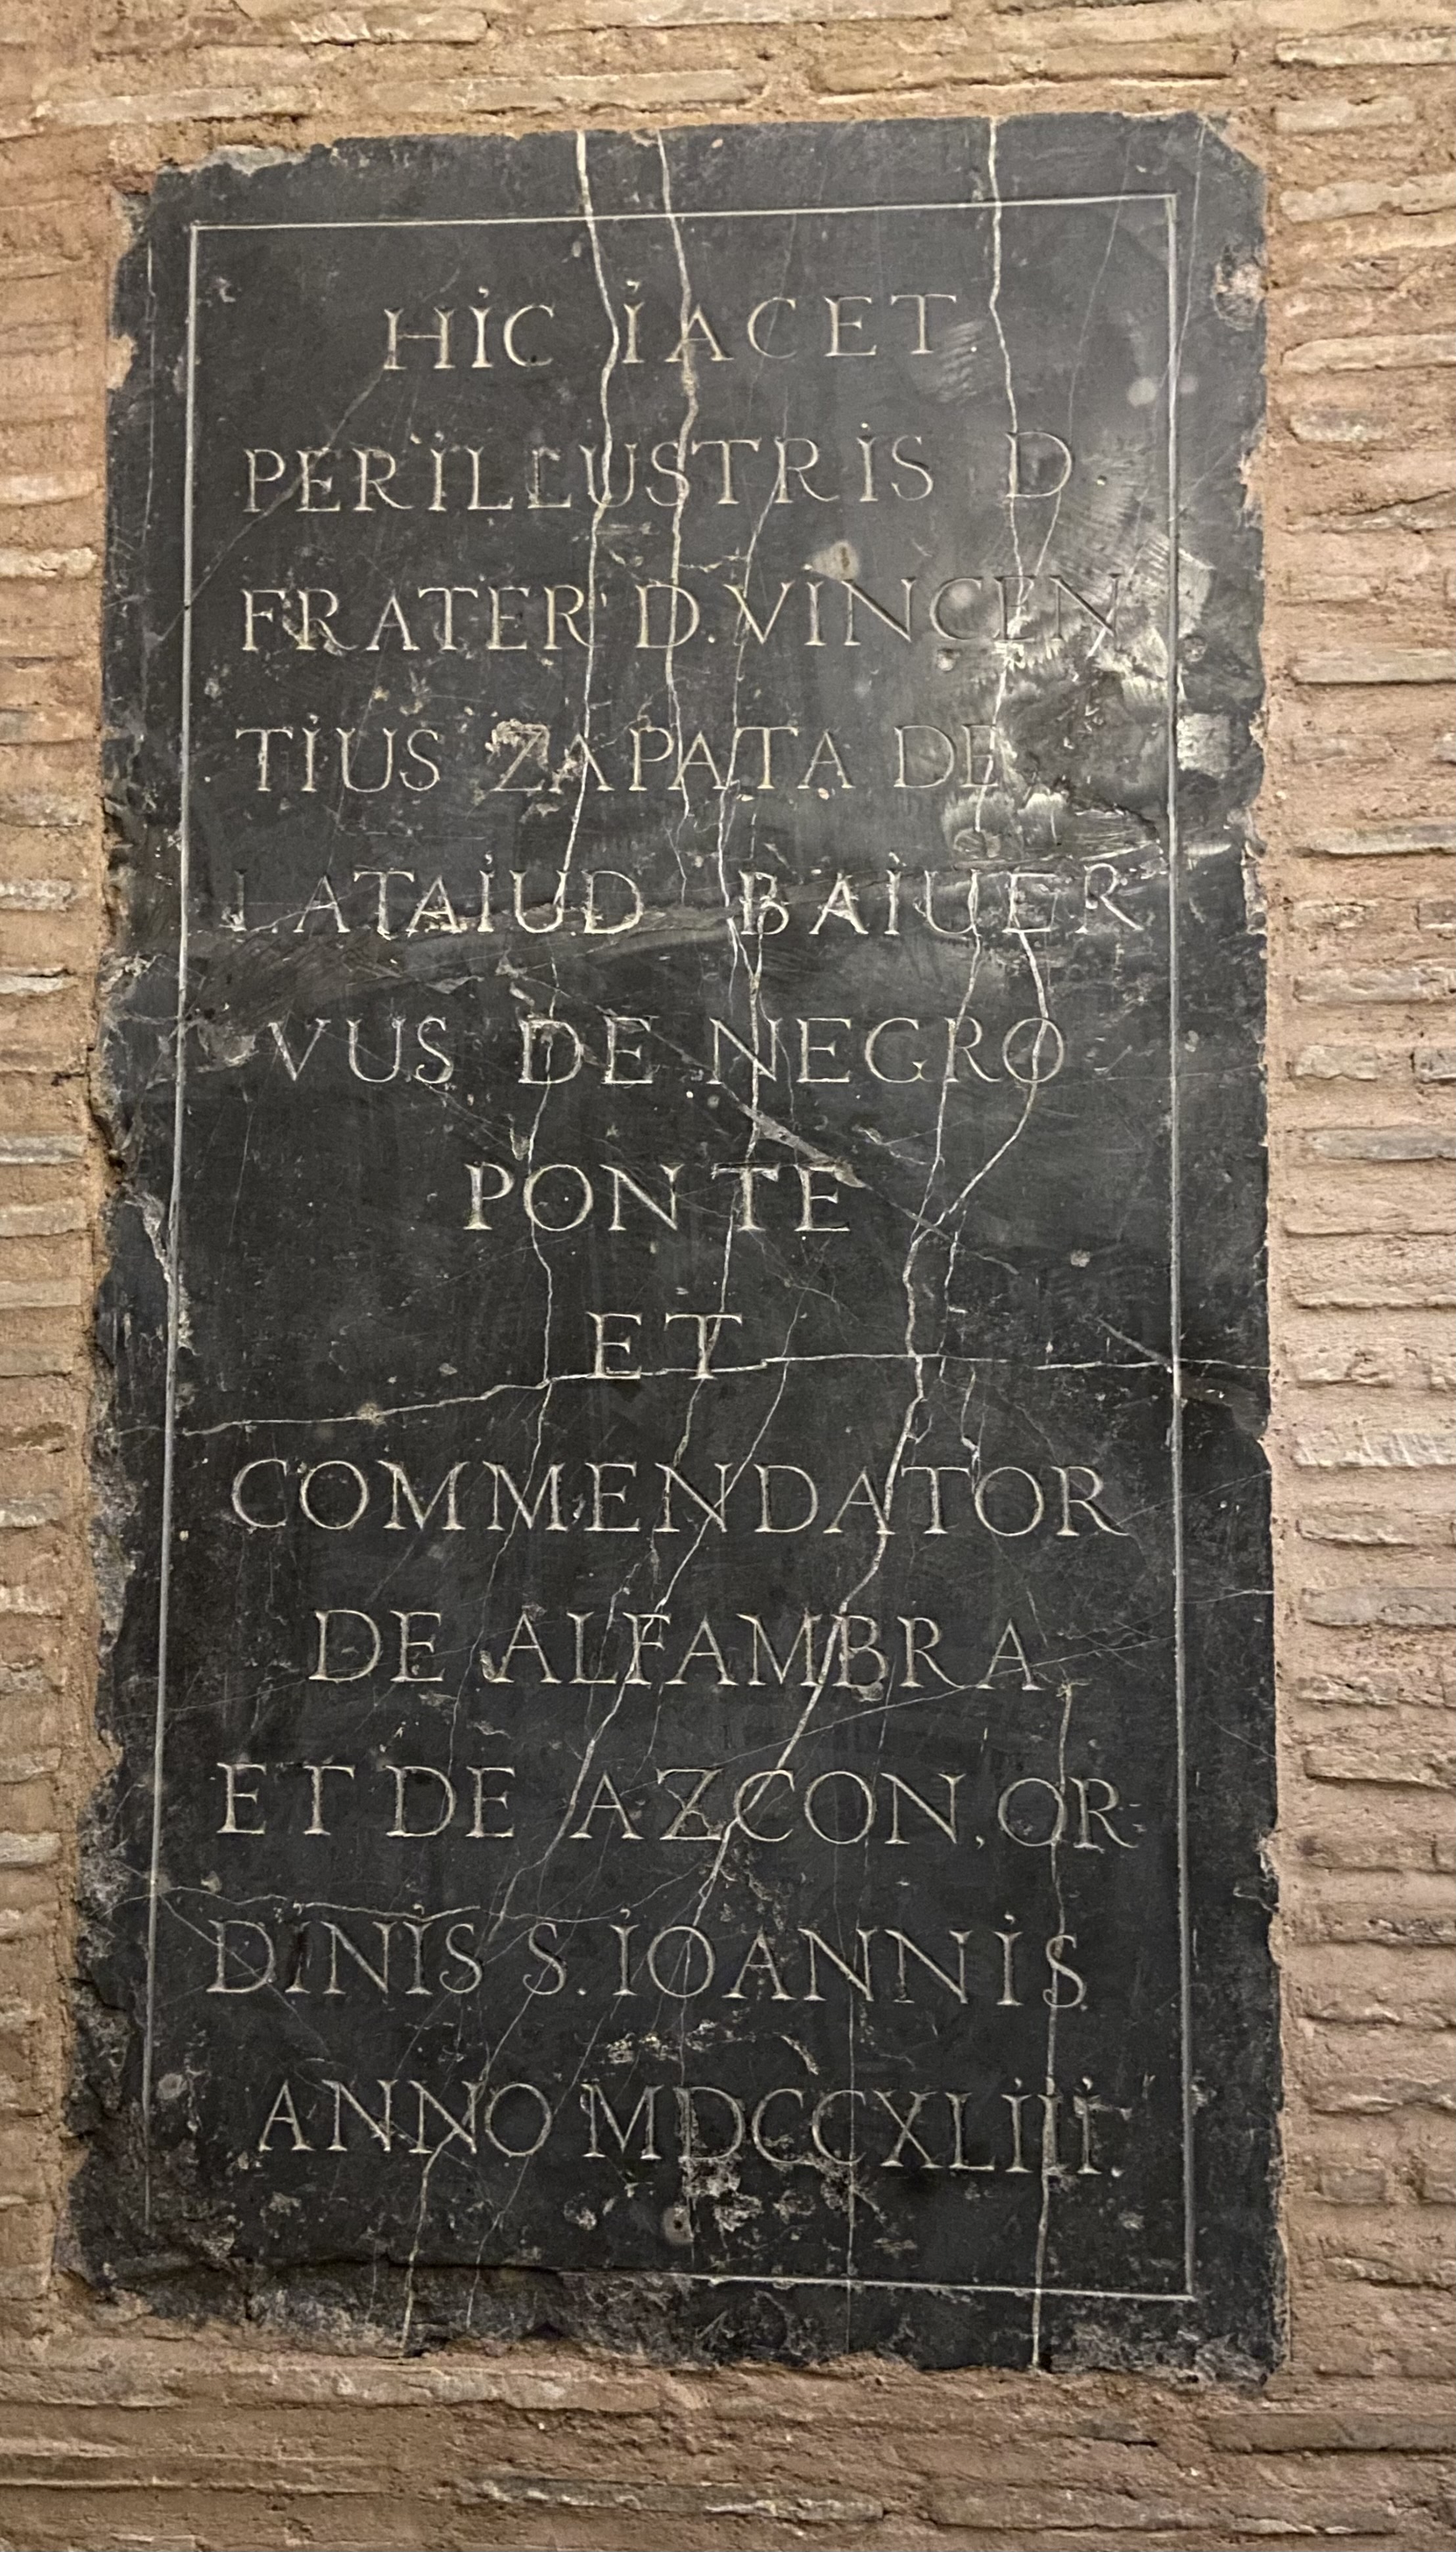 HIC IACET
PERILLUSTRIS D.
FRATER D. VINCEN
TIUS ZAPATA DE
LATAIUD BAIUER
VUS DE NEGRO
PONTE
ET
COMMENDATOR
DE ALFAMBRA
ET DE AZCON, OR-
DINIS S. IOANNIS
ANNO MDCCXLIII.